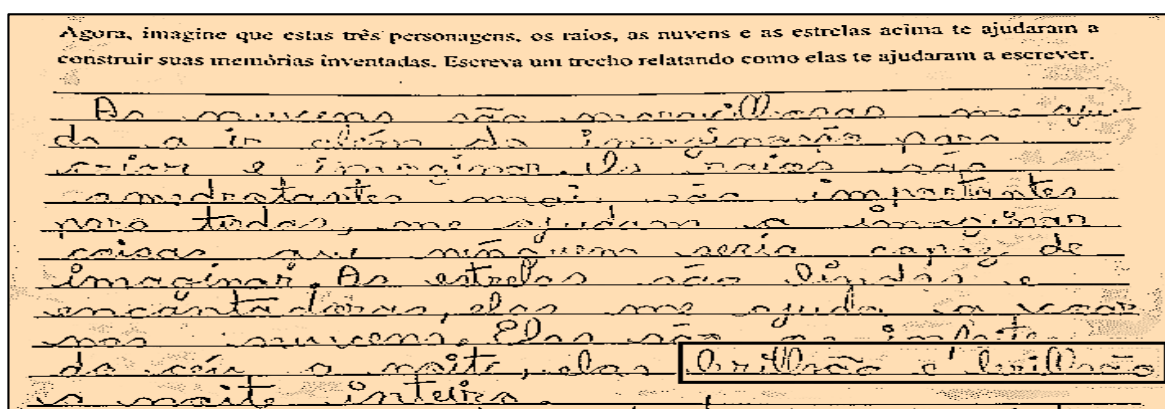 Agora, imagine que estas três personagens, os raios, as nuvens e as estrelas acima te ajudaram a
construir suas memórias inventadas. Escreva um trecho relatando como elas te ajudaram a escrever.
As nuvens são maravilhosas me aju-
da a ir além da imaginação para
criar e imaginar. Os raios são
amedrotantes mai são importantes
para todas, me ajudam a imaginar
coisas que ninguem seria capaz de
imaginar. As estrelas são lindas e
encantadoras, elas me ajuda a voar
nas nuvens. Elas são
do céu a noite, elas brilhão e brilhão
a noite inteira.